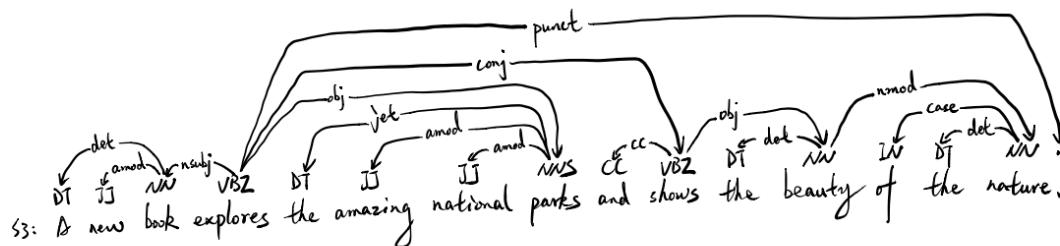 punct
conj
obj nmod
det obj case
det amod amod cc det det
amod nsubj
DT JJ NN VBZ DT JJ JJ NNS CC VBZ DT NN IN DT NN .
S3: A new book explores the amazing national parks and shows the beauty of the nature.